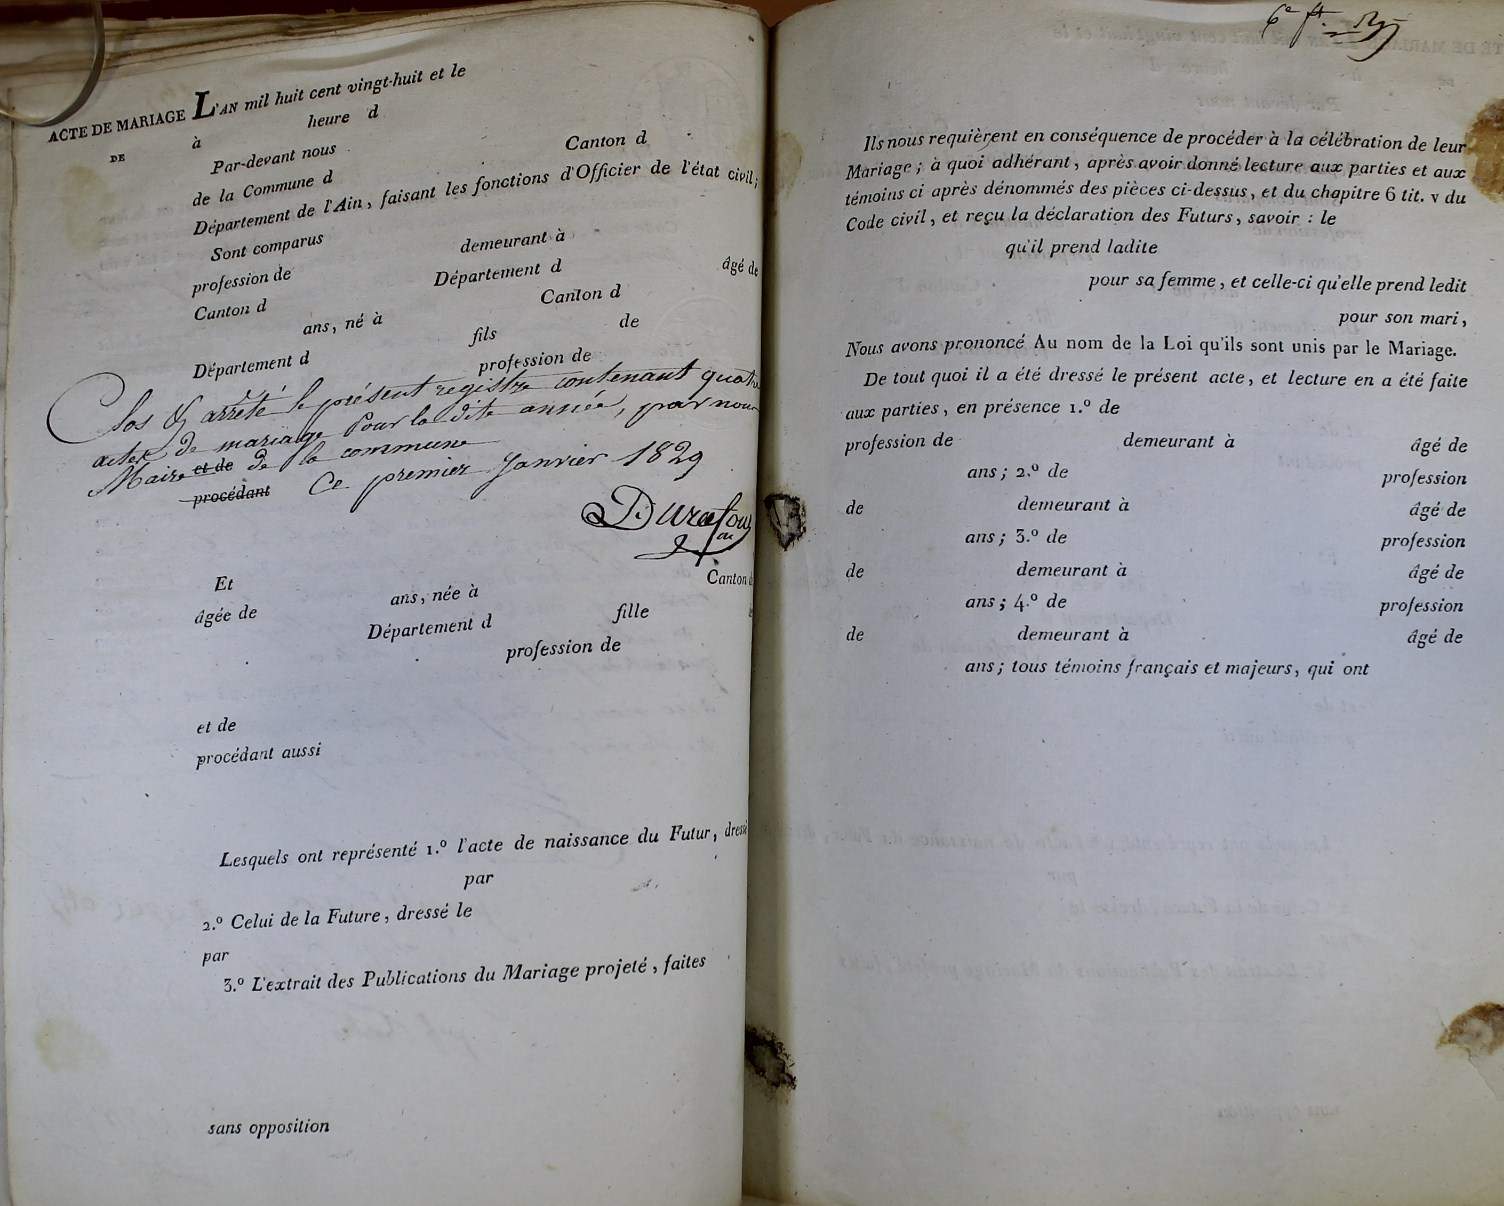 ACTE DE MARIAGE L'AN mil huit cent vingt-huit et le
DE à heure d
Par-devant nous
de la Commune d Canton d
Département de l'Ain, faisant les fonctions d'Officier de l'état civil;
Sont comparus
profession de demeurant à
Canton d Département d âgé de
ans, né à Canton d
Département d fils de
profession de
Clos & arrêté le présent registre contenant quatre
actes de mariage Pour la dite année, par nous
Maire et de de la commune
procédant Ce premier Janvier 1829
Durafour
Et
âgée de ans, née à Canton d
Département d fille
profession de
et de
procédant aussi
Lesquels ont représenté 1.º l'acte de naissance du Futur, dressé
par
2.º Celui de la Future, dressé le
par
3.º L'extrait des Publications du Mariage projeté, faites
sans opposition
6e ft.
Ils nous requièrent en conséquence de procéder à la célébration de leur
Mariage; à quoi adhérant, après avoir donné lecture aux parties et aux
témoins ci après dénommés des pièces ci-dessus, et du chapitre 6 tit. v du
Code civil, et reçu la déclaration des Futurs, savoir : le
qu'il prend ladite
pour sa femme, et celle-ci qu'elle prend ledit
pour son mari,
Nous avons prononcé Au nom de la Loi qu'ils sont unis par le Mariage.
De tout quoi il a été dressé le présent acte, et lecture en a été faite
aux parties, en présence 1.º de
profession de demeurant à âgé de
ans; 2.º de profession
de demeurant à âgé de
ans; 3.º de profession
de demeurant à âgé de
ans; 4.º de profession
de demeurant à âgé de
ans; tous témoins français et majeurs, qui ont